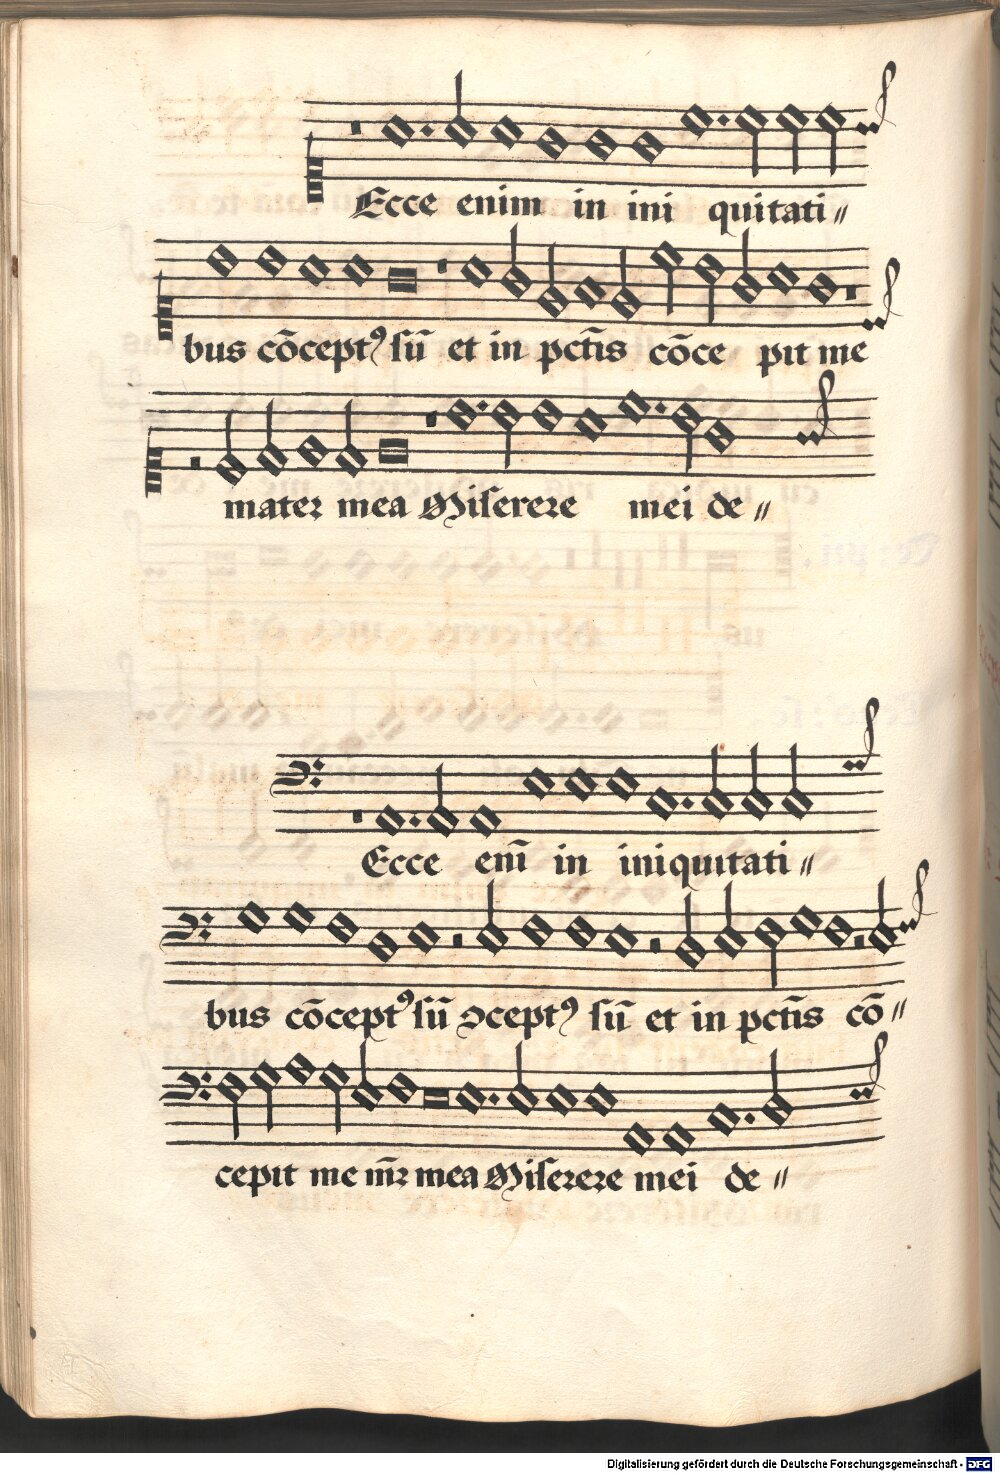 Ecce enim in ini quitati〃
bus cōceptꝰ ſū et in pct̄is cōce pit me
mater mea Miſerere mei de〃
Ecce enī in iniquitati〃
bus cōceptꝰ ſū ꝯceptꝰ ſū et in pct̄is cō〃
cepit me mr̄ mea Miſerere mei de〃
Digitalisierung gefördert durch die Deutsche Forschungsgemeinschaft - DFG